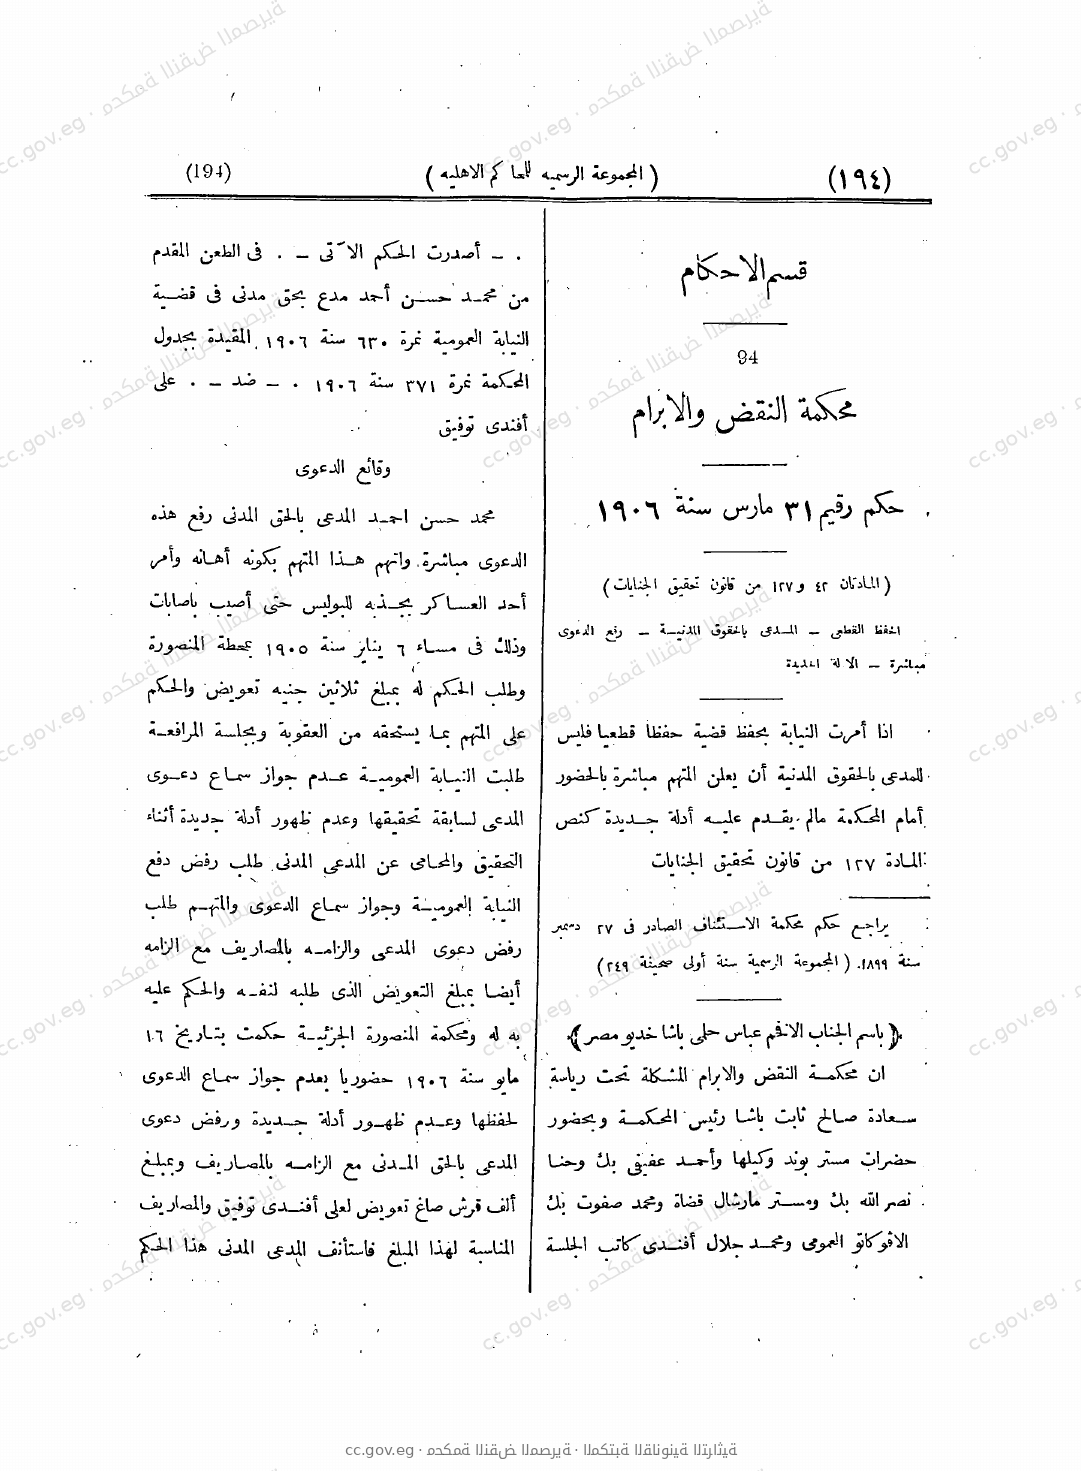 (١٩٤)
( المجموعة الرسميه للمحاكم الاهليه )
(194)
قسم الاحكام
94
محكمة النقض والابرام
حكم رقيم ٣١ مارس سنة ١٩٠٦
( المادتان ٤٢ و١٢٧ من قانون تحقيق الجنايات )
الحفظ القطعى – المدعى بالحقوق المدنية – رفع الدعوى
مباشرة – الادلة الجديدة
اذا أمرت النيابة بحفظ قضية حفظا قطعيا فليس
للمدعى بالحقوق المدنية أن يعلن المتهم مباشرة بالحضور
أمام المحكمة مالم يقدم عليه أدلة جديدة كنص
المادة ١٢٧ من قانون تحقيق الجنايات
يراجع حكم محكمة الاستئناف الصادر فى ٢٧ دسمبر
سنة ١٨٩٩. ( المجموعة الرسمية سنة أولى صحيفة ٢٤٩ )
﴿ باسم الجناب الافخم عباس حلمى باشا خديو مصر ﴾
ان محكمة النقض والابرام المشكلة تحت رياسة
سعادة صالح ثابت باشا رئيس المحكمة وبحضور
حضرات مستر بوند وكيلها وأحمد عفيفى بك وحنا
نصر الله بك ومستر مارشال قضاة ومحمد صفوت بك
الافوكاتو العمومى ومحمد جلال أفندى كاتب الجلسة
. – أصدرت الحكم الآتى – . فى الطعن المقدم
من محمد حسن أحمد مدع بحق مدنى فى قضية
النيابة العمومية نمرة ٦٣٠ سنة ١٩٠٦ المقيدة بجدول
المحكمة نمرة ٣٧١ سنة ١٩٠٦ . – ضد – . على
أفندى توفيق
وقائع الدعوى
محمد حسن احمد المدعى بالحق المدنى رفع هذه
الدعوى مباشرة واتهم هذا المتهم بكونه أهانه وأمر
أحد العساكر بجذبه للبوليس حتى أصيب باصابات
وذلك فى مساء ٦ يناير سنة ١٩٠٥ بمحطة المنصورة
وطلب الحكم له بمبلغ ثلاثين جنيه تعويض والحكم
على المتهم بما يستحقه من العقوبة وبجلسة المرافعة
طلبت النيابة العمومية عدم جواز سماع دعوى
المدعى لسابقة تحقيقها وعدم ظهور أدلة جديدة أثناء
التحقيق والمحامى عن المدعى المدنى طلب رفض دفع
النيابة العمومية وجواز سماع الدعوى والمتهم طلب
رفض دعوى المدعى والزامه بالمصاريف مع الزامه
أيضا بمبلغ التعويض الذى طلبه لنفسه والحكم عليه
به له ومحكمة المنصورة الجزئية حكمت بتاريخ ١٦
مايو سنة ١٩٠٦ حضوريا بعدم جواز سماع الدعوى
لحفظها وعدم ظهور أدلة جديدة ورفض دعوى
المدعى بالحق المدنى مع الزامه بالمصاريف وبمبلغ
ألف قرش صاغ تعويض لعلى أفندى توفيق والمصاريف
المناسبة لهذا المبلغ فاستأنف المدعى المدنى هذا الحكم
cc.gov.eg · محكمة النقض المصرية · المكتبة القانونية التراثية